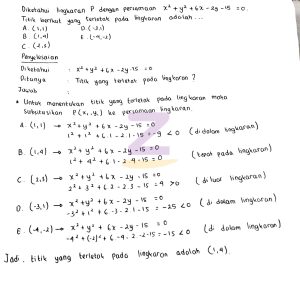 Diketahui lingkaran P dengan persamaan x² + y² + 6x - 2y - 15 = 0.
Titik berikut yang terletak pada lingkaran adalah ...
A. (1,1)    D. (-3,1)
B. (1,4)    E. (-4,-2)
C. (2,3)
Penyelesaian
Diketahui : x² + y² + 6x - 2y - 15 = 0
Ditanya : Titik yang terletak pada lingkaran ?
Jawab :
* Untuk menentukan titik yang terletak pada lingkaran maka
Substitusikan P(x,y) ke persamaan lingkaran.
A. (1,1) → x² + y² + 6x - 2y - 15 = 0
1² + 1² + 6.1 - 2.1 - 15 = -9 < 0 (di dalam lingkaran)
B. (1,4) → x² + y² + 6x - 2y - 15 = 0
1² + 4² + 6.1 - 2.4 - 15 = 0 (terat pada lingkaran)
C. (2,3) → x² + y² + 6x - 2y - 15 = 0
2² + 3² + 6.2 - 2.3 - 15 = 4 > 0 (di luar lingkaran)
D. (-3,1) → x² + y² + 6x - 2y - 15 = 0
-3² + 1² + 6.-3 - 2.1 - 15 = -25 < 0 (di dalam lingkaran)
E. (-4,-2) → x² + y² + 6x - 2y - 15 = 0
-4² + (-2)² + 6.-4 - 2.-2 - 15 = -15 < 0 (di dalam lingkaran)
Jadi, titik yang terletak pada lingkaran adalah (1,4).